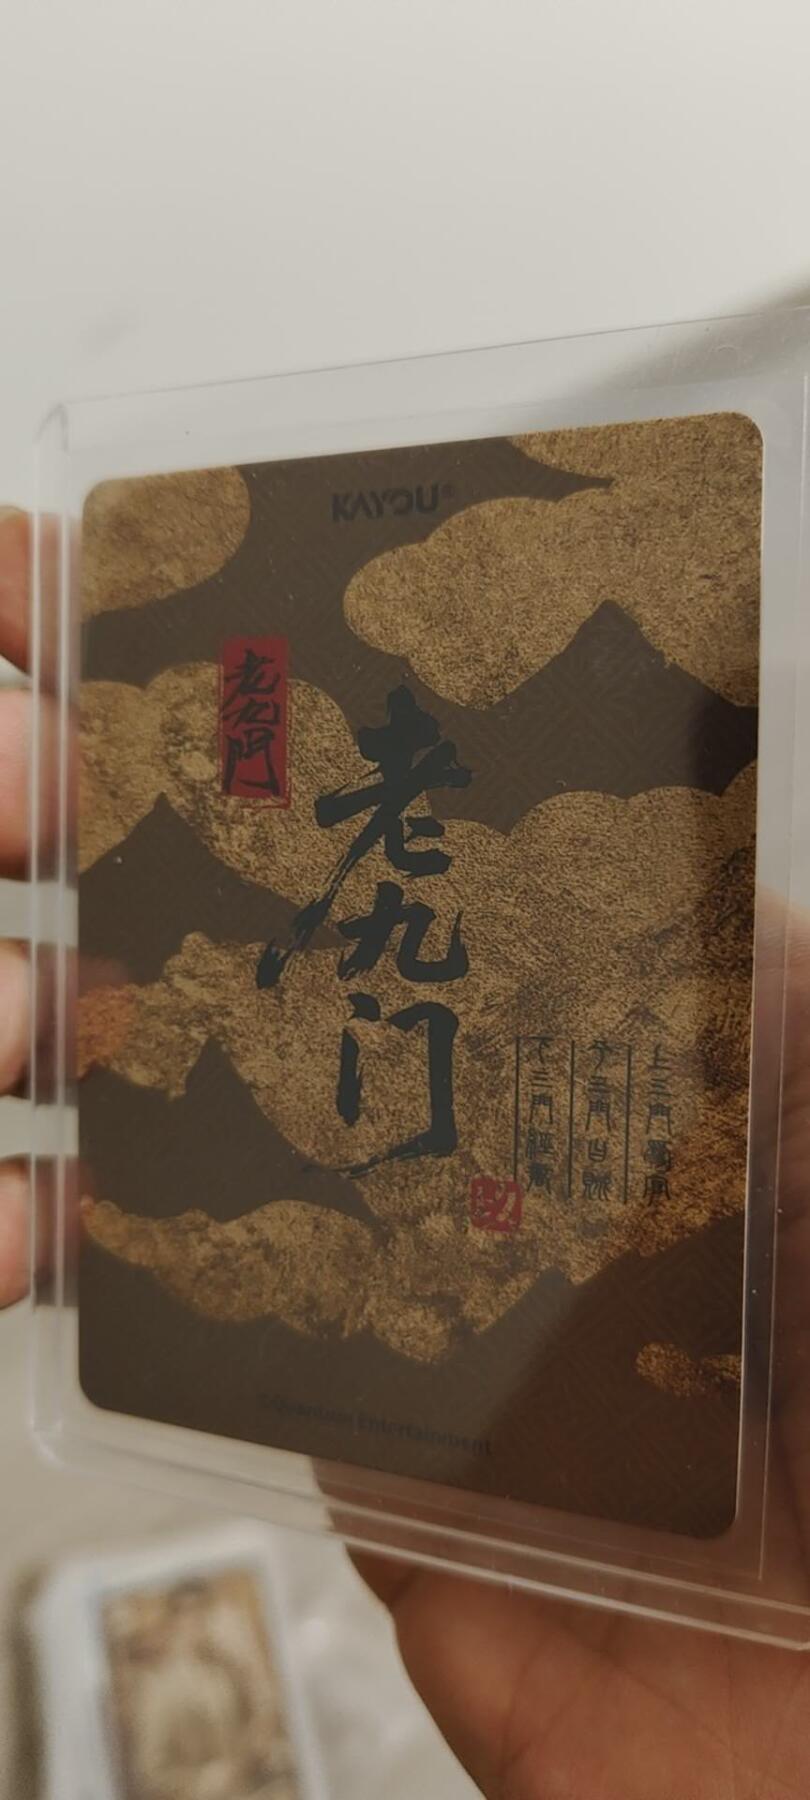 KAYOU®
老九門
老九门
上三門為官
平三門出賊
下三門經商
©Quantum Entertainment